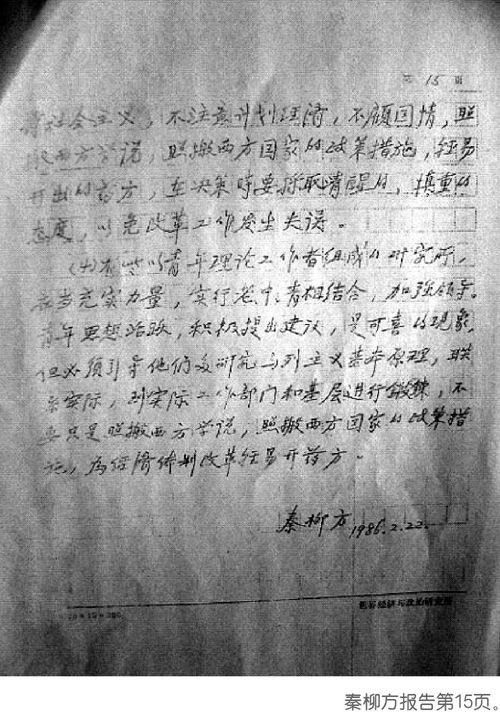 第 15 页
社会主义，不注意计划经济，不顾国情，照
搬西方学说，照搬西方国家的政策措施，轻易
开出的药方，在决策時要採取清醒的、慎重的
态度，以免改革工作发生失误。
(4)有些以青年理论工作者组成的研究所，
应当充实力量，实行老中青相结合，加强领导。
青年思想活跃，积极提出建议，是可喜的现象，
但必须引导他们多研究马列主义基本原理，联
系实际，到实际工作部门和基层进行鍛鍊，不
要只是照搬西方学说，照搬西方国家的政策措
施，為经济体制改革轻易开药方。
秦柳方 1986.2.22.
世界经济与政治研究所
20×15=300
秦柳方报告第15页。